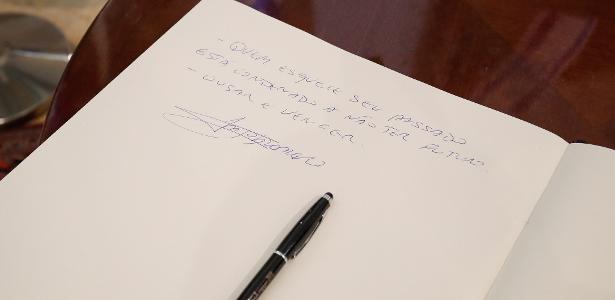 - QUEM ESQUECE SEU PASSADO
ESTÁ CONDENADO A NÃO TER FUTURO.
- OUSAR E VENCER.